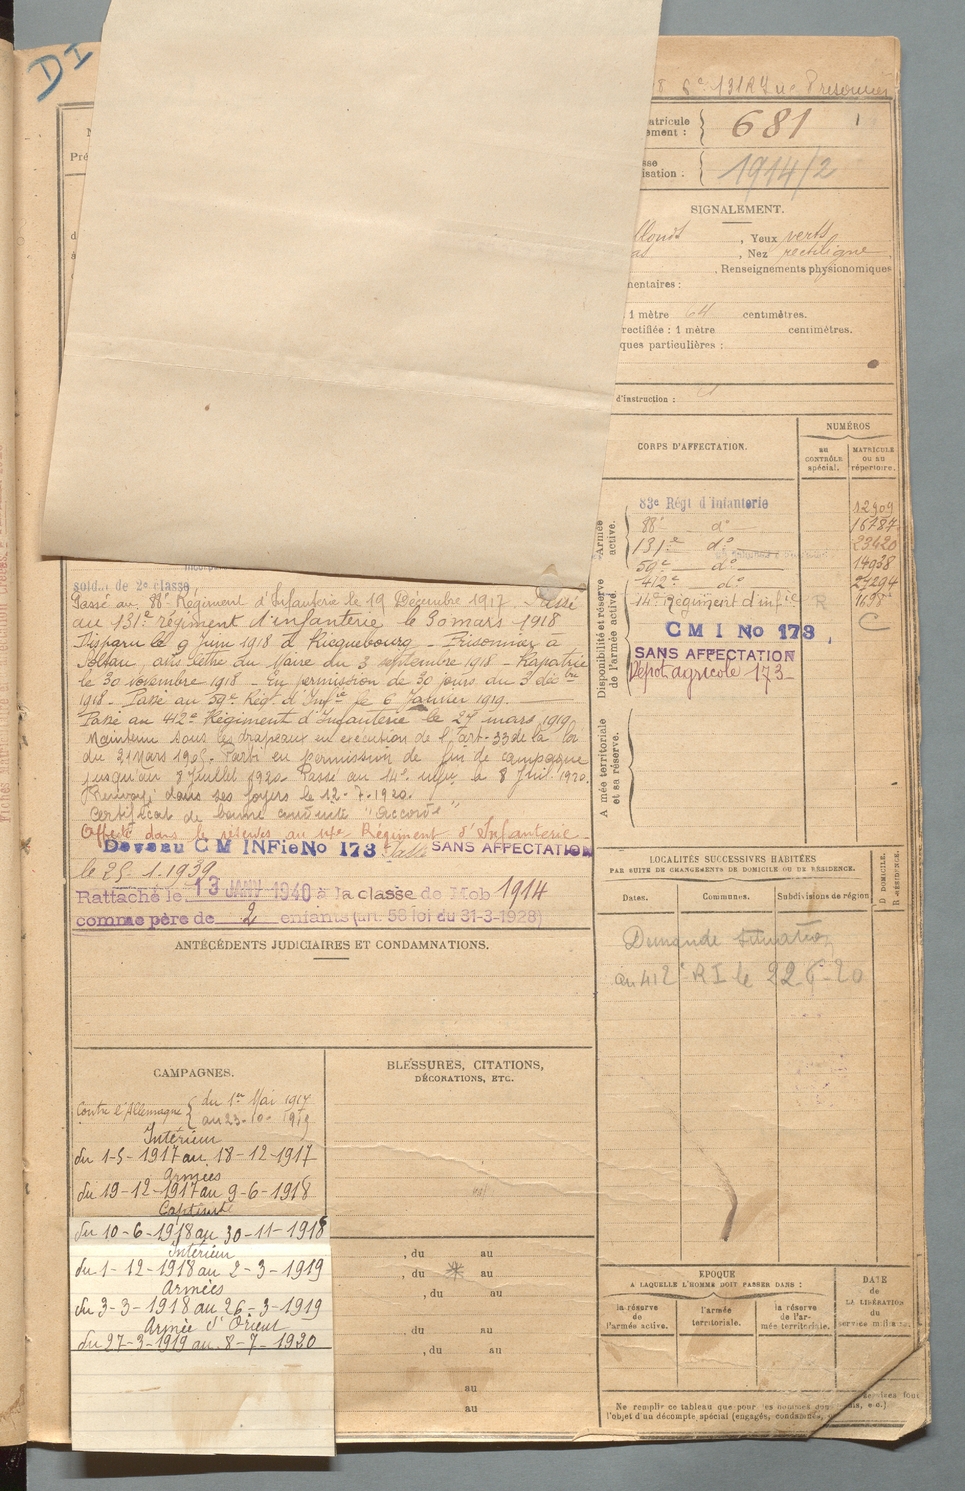 DI
8 6e 131 R.I. Prisonnier
Pré
atricule
ement :
681
sse
isation :
1914/2
SIGNALEMENT.
blonds , Yeux verts
, Nez rectiligne
, Renseignements physionomiques
mentaires :
: 1 mètre 64 centimètres.
rectifiée : 1 mètre centimètres.
ques particulières :
d'instruction :
CORPS D'AFFECTATION.
NUMÉROS
AU CONTRÔLE spécial.
MATRICULE ou au répertoire.
Armée active.
83e Régt d'Infanterie 12909
88e do 16787
131e do 23420
59e do 14938
412e do
14e Régiment d'infie R 1698
C
Disponibilité et réserve de l'armée active.
C M I No 173
SANS AFFECTATION
Dépot agricole 173
A mée territoriale et sa réserve.
incorp
sold.. de 2e classe
Passé au 88e Régiment d'Infanterie le 19 Décembre 1917. Passé
au 131e régiment d'infanterie le 30 mars 1918
Disparu le 9 Juin 1918 à Ricquebourg - Prisonnier à
Soltau, avis lettre du Maire du 3 septembre 1918 - Rapatrié
le 30 novembre 1918 - En permission de 30 jours au 3 décbre
1918 - Passé au 59e Régt d'Infie le 6 Janvier 1919.
Passé au 412e Régiment d'Infanterie le 27 mars 1919
Maintenu sous les drapeaux en exécution de l'art-33 de la loi
du 21 Mars 1905. Parti en permission de fin de campagne
jusqu'au 8 Juillet 1920. Passé au 14e le 8 Juil. 1920.
Renvoyé dans ses foyers le 12-7-1920.
Certificat de bonne conduite "Accordé"
Affecté dans la réserve au 14e Régiment d'Infanterie
C M INFie No 173 SANS AFFECTATION
le 25. 1. 1939
Rattaché le 13 JANV 1940 à la classe de Mob 1914
comme père de 2 enfants (art. 58 loi du 31-3-1928)
ANTÉCÉDENTS JUDICIAIRES ET CONDAMNATIONS.
LOCALITÉS SUCCESSIVES HABITÉES
PAR SUITE DE CHANGEMENTS DE DOMICILE OU DE RÉSIDENCE.
Dates. Communes. Subdivisions de région
D DOMICILE.
R RÉSIDENCE.
Demande situation
au 412e RI le 22 6-20
CAMPAGNES.
Contre l'Allemagne { du 1er Mai 1917
au 23-10-1919
Intérieur
du 1-5-1917 au 18-12-1917
Armées
du 19-12-1917 au 9-6-1918
Captivité
du 10-6-1918 au 30-11-1918
Intérieur
du 1-12-1918 au 2-3-1919
Armées
du 3-3-1918 au 26-3-1919
Armée d'Orient
du 27-3-1919 au 8-7-1920
BLESSURES, CITATIONS,
DÉCORATIONS, ETC.
, du au
, du au
, du au
, du au
, du au
au
au
ÉPOQUE
A LAQUELLE L'HOMME DOIT PASSER DANS :
la réserve de l'armée active.
l'armée territoriale.
la réserve de l'armée territoriale.
DATE de LA LIBÉRATION du service militaire.
Ne remplir ce tableau que pour les hommes
l'objet d'un décompte spécial (engagés, condamnés,